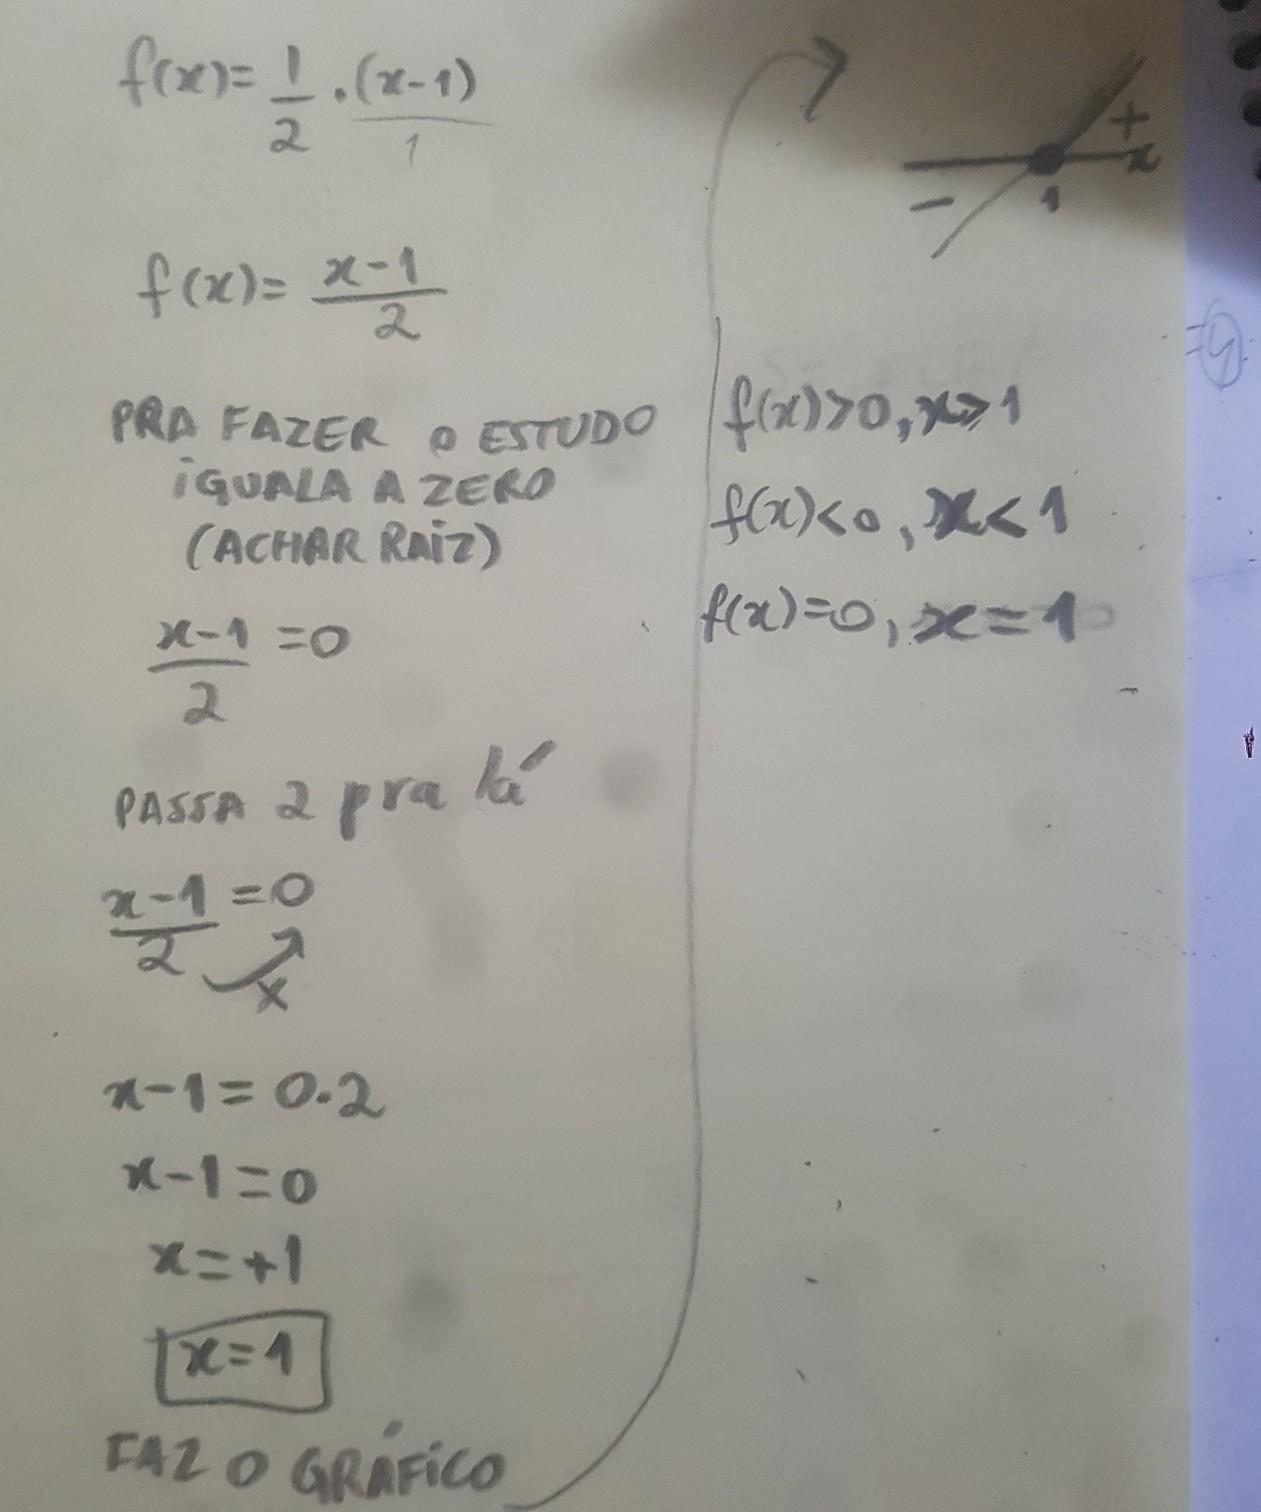 f(x)= 1/2 . (x-1)/1
f(x)= x-1/2
PRA FAZER O ESTUDO
iGUALA A ZERO
(ACHAR RAiZ)
x-1/2 =0
PASSA 2 pra lá
x-1/2 =0
x
x-1=0.2
x-1=0
x=+1
x=1
FAZ O GRÁFiCO
+
x
- 1
f(x)>0, x>1
f(x)<0, x<1
f(x)=0, x=1